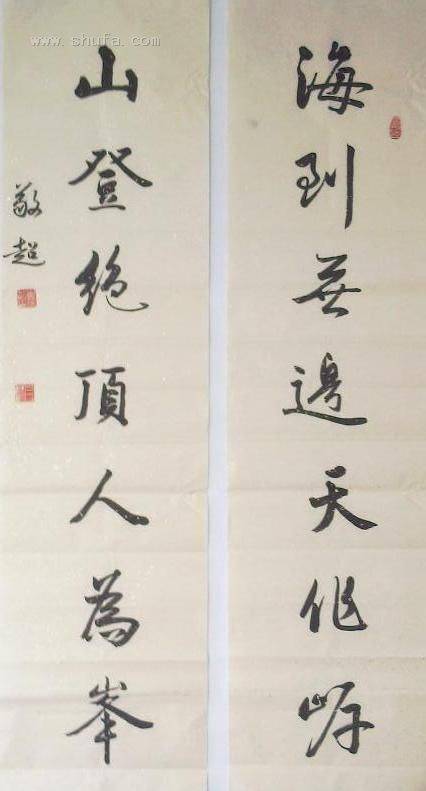 海到無邊天作岸
山登絶頂人為峯
敬超
www.shufa.com